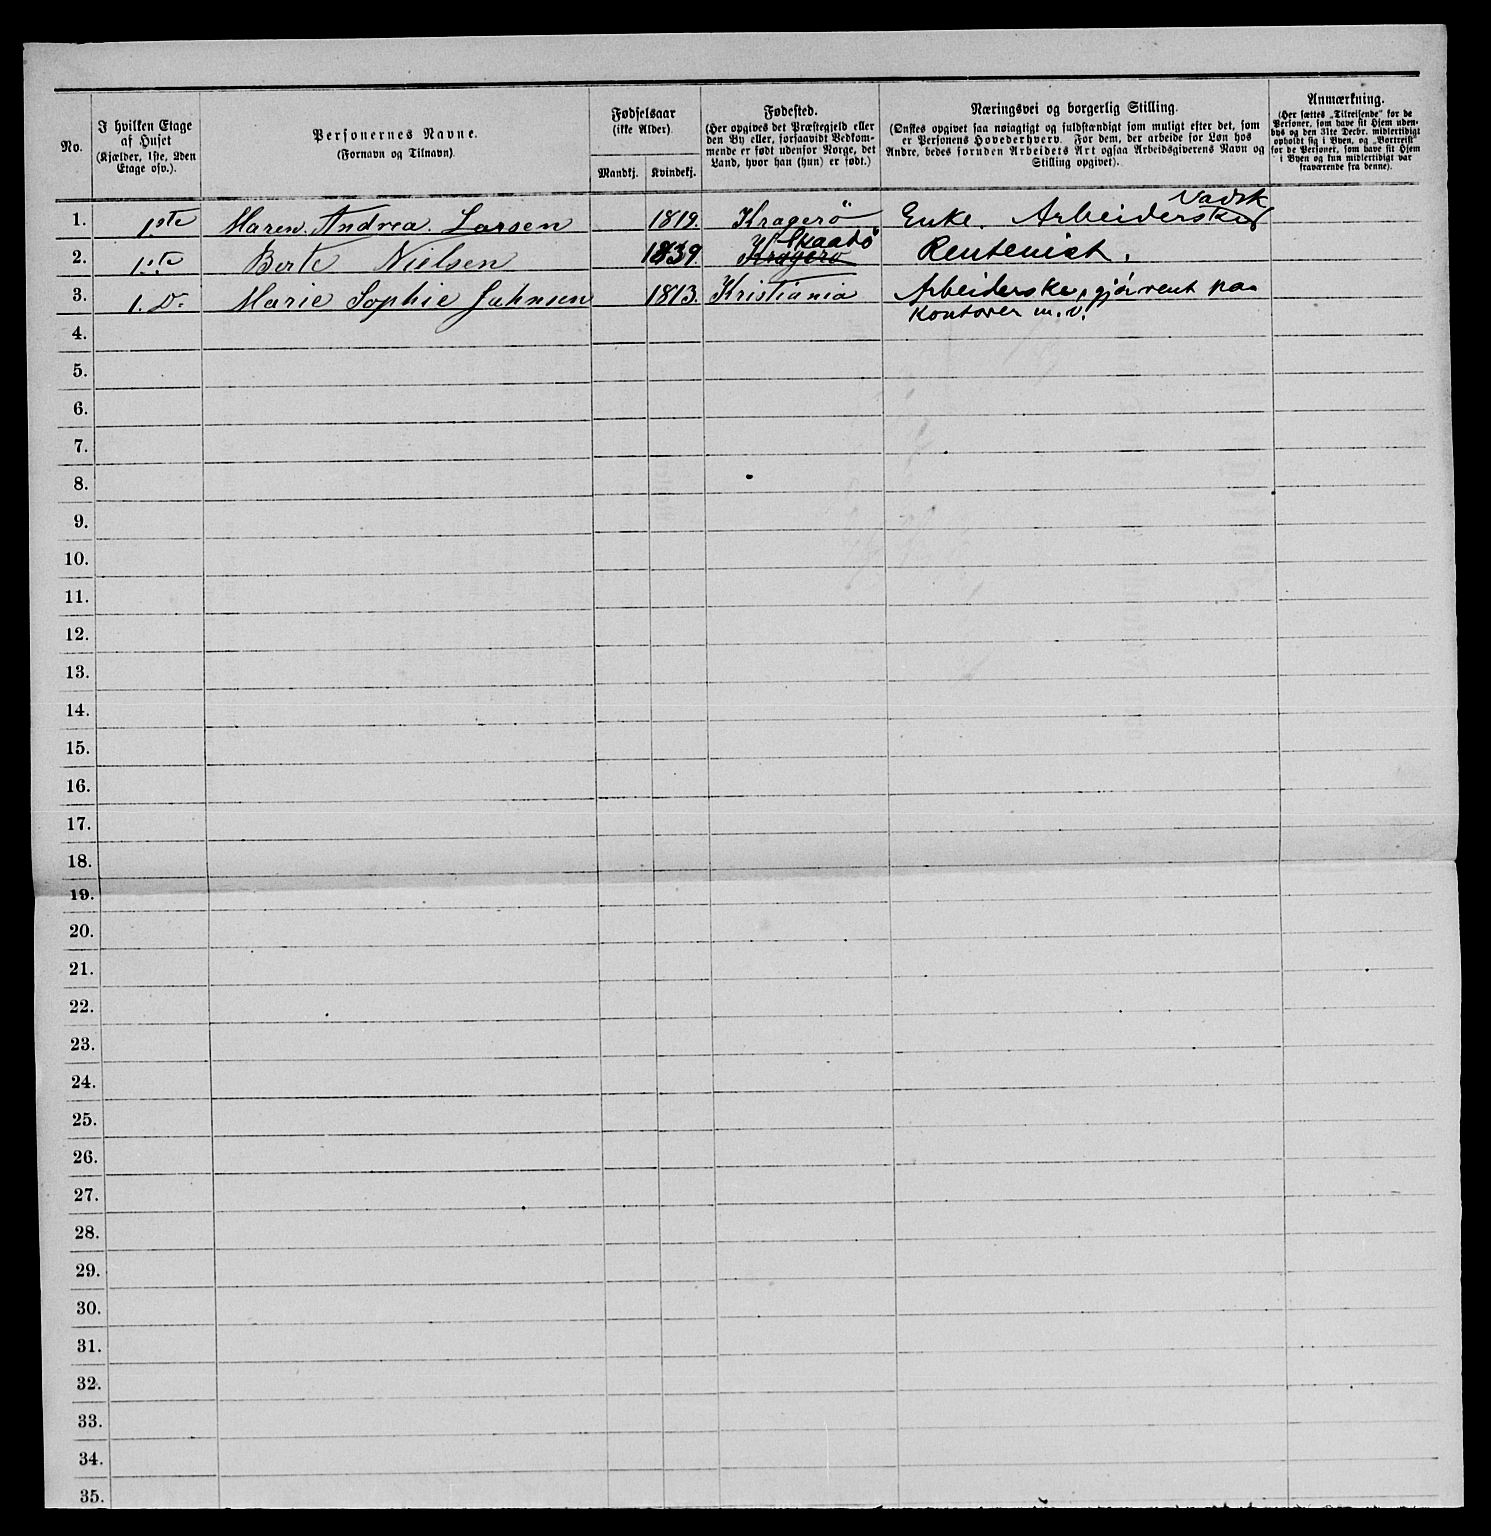 No.
I hvilken Etage
af Huset
(Kjælder, 1ste, 2den
Etage osv.).
Personernes Navne.
(Fornavn og Tilnavn).
Fødselsaar
(ikke Alder).
Mandkj. Kvindekj.
Fødested.
(Her opgives det Præstegjeld eller
den By eller, forsaavidt Vedkom-
mende er født udenfor Norge, det
Land, hvor han (hun) er født.)
Næringsvei og borgerlig Stilling.
(Ønskes opgivet saa nøiagtigt og fuldstændigt som muligt efter det, som
er Personens Hovederhverv. For dem, der arbeide for Løn hos
Andre, bedes foruden Arbeidets Art ogsaa Arbeidsgiverens Navn og
Stilling opgivet).
Anmærkning.
(Her sættes „Tilreisende" for de
Personer, som have sit Hjem uden-
bys og den 31te Decbr. midlertidigt
opholdt sig i Byen, og „Bortreist"
for de Personer, som have sit Hjem
i Byen og kun midlertidigt var
fraværende fra denne).
Vadsk
1. 1ste Maren Andrea Larsen 1819. Kragerö Enke. Arbeiderske
Skaatö
2. 1ste Berte Nielsen 1839 Kragerö Rentenist.
3. 1. D. Marie Sophie Jahnsen 1813. Kristiania Arbeiderske, gjör rent paa
Kontorer m. v.
4.
5.
6.
7.
8.
9.
10.
11.
12.
13.
14.
15.
16.
17.
18.
19.
20.
21.
22.
23.
24.
25.
26.
27.
28.
29.
30.
31.
32.
33.
34.
35.